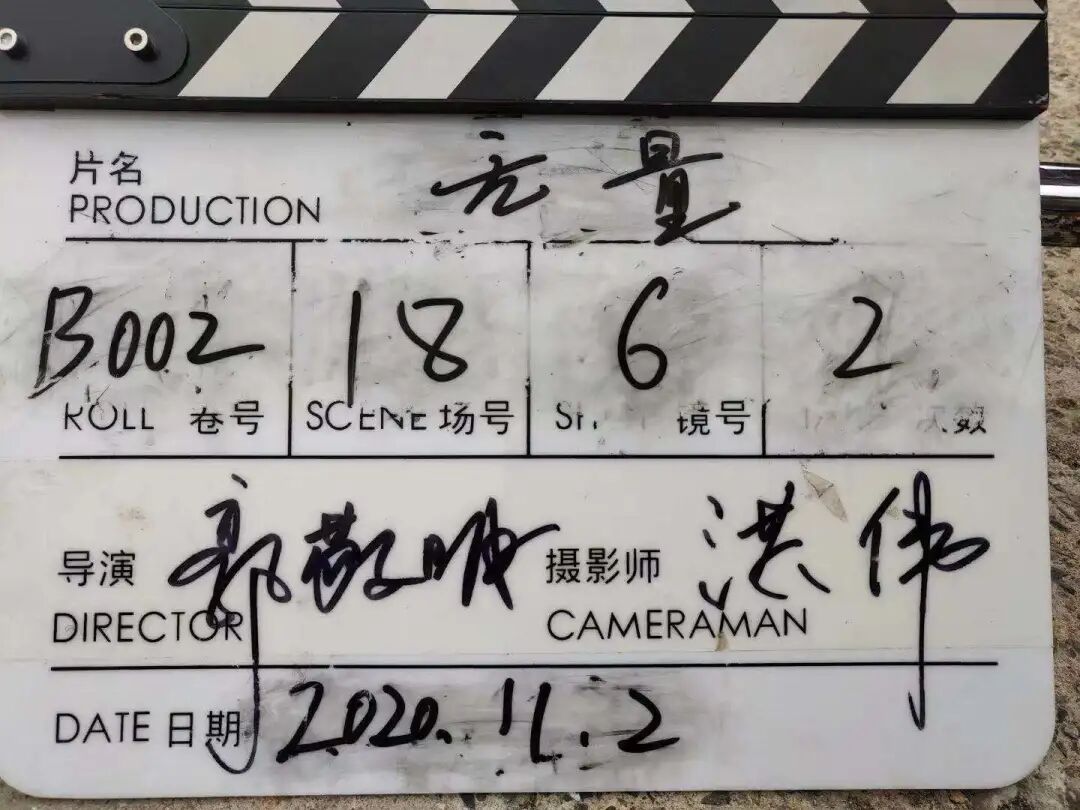 片名 无量
PRODUCTION
B002 18 6 2
ROLL 卷号 SCENE 场号 镜号 次数
导演 郭敬明 摄影师 洪伟
DIRECTOR CAMERAMAN
DATE 日期 2020.11.2